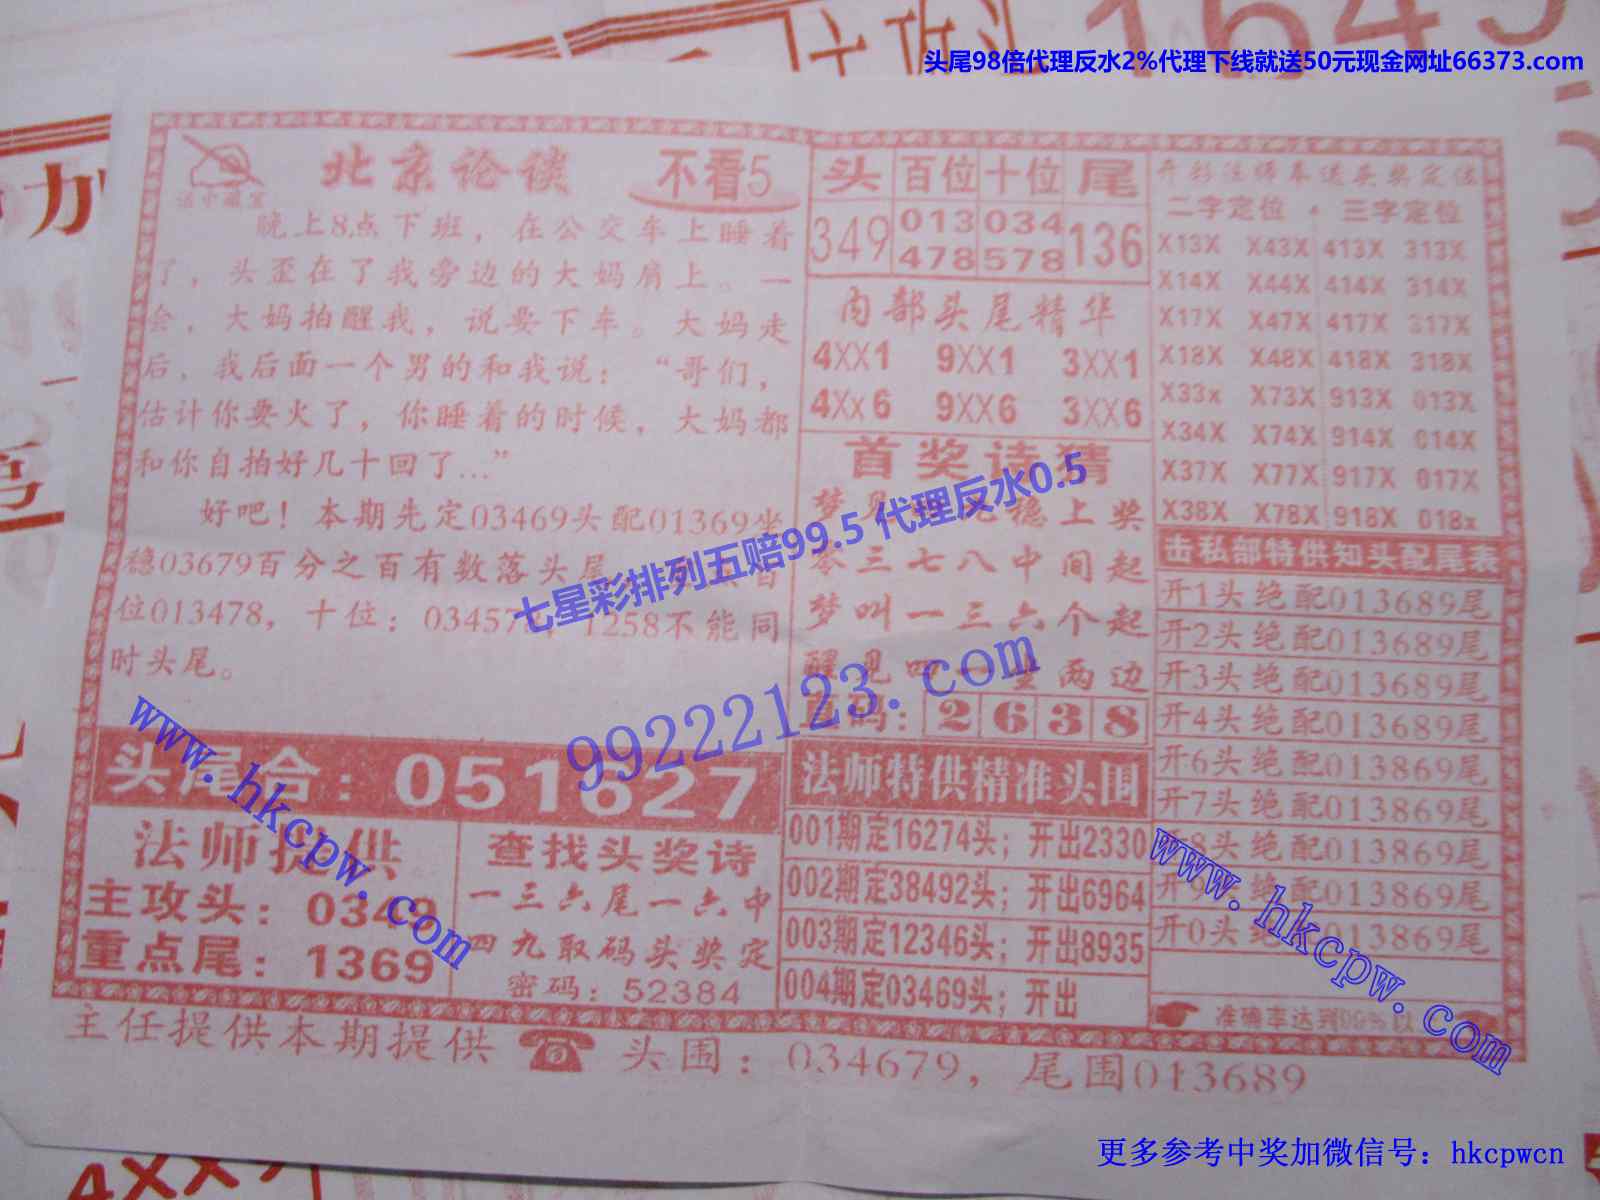 头尾98倍代理反水2%代理下线就送50元现金网址66373.com
北京论谈
不看5
晚上8点下班，在公交车上睡着
了，头歪在了我旁边的大妈肩上。一
会，大妈拍醒我，说要下车。大妈走
后，我后面一个男的和我说：“哥们，
估计你要火了，你睡着的时候，大妈都
和你自拍好几十回了...”
好吧！本期先定03469头配01369坐
稳03679百分之百有数落头尾
位013478，十位：03457
1258不能同
时头尾。
头尾合：051627
法师提供
主攻头：0349
重点尾：1369
查找头奖诗
一三六尾一六中
四九取码头奖定
密码：52384
头 百位 十位 尾
349 013 034 136
478 578
内部头尾精华
4XX1 9XX1 3XX1
4Xx6 9XX6 3XX6
首奖诗猜
梦见 稳上奖
零三七八中间起
梦叫一三六个起
醒见四 两边
密码：2638
法师特供精准头围
001期定16274头；开出2330
002期定38492头；开出6964
003期定12346头；开出8935
004期定03469头；开出
开彩法师奉送头奖定位
二字定位 三字定位
X13X X43X 413X 313X
X14X X44X 414X 314X
X17X X47X 417X 317X
X18X X48X 418X 318X
X33x X73X 913X 013X
X34X X74X 914X 014X
X37X X77X 917X 017X
X38X X78X 918X 018x
击私部特供知头配尾表
开1头绝配013689尾
开2头绝配013689尾
开3头绝配013689尾
开4头绝配013689尾
开6头绝配013869尾
开7头绝配013869尾
开8头绝配013869尾
开9头绝配013869尾
开0头绝配013869尾
准确率达到99%以
主任提供本期提供 头围：034679，尾围013689
七星彩排列五赔99.5 代理反水0.5
99222123.com
www.hkcpw.com
www.hkcpw.com
更多参考中奖加微信号：hkcpwcn
1645
4XXX